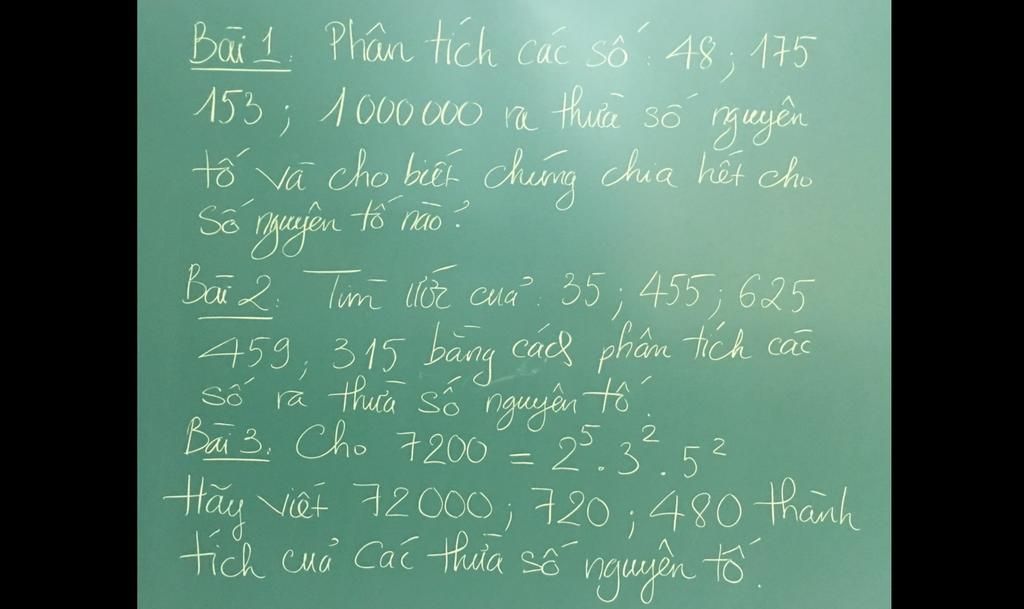 Bài 1: Phân tích các số: 48; 175
153; 1000000 ra thừa số nguyên
tố và cho biết chúng chia hết cho
số nguyên tố nào?
Bài 2: Tìm ước của: 35; 455; 625
459, 315 bằng cách phân tích các
số ra thừa số nguyên tố.
Bài 3. Cho 7200 = 2⁵.3².5²
Hãy viết 72000; 720; 480 thành
tích của các thừa số nguyên tố.